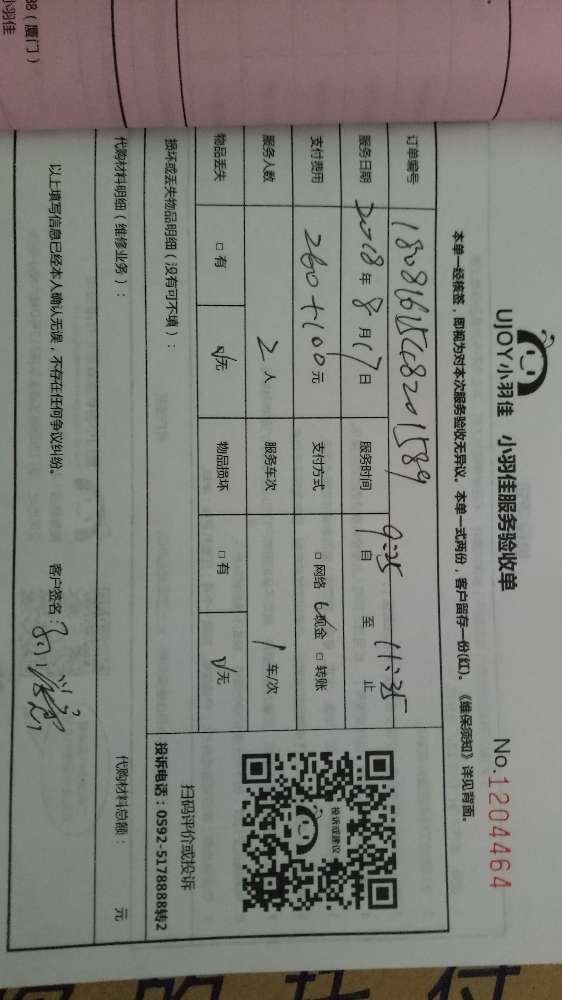 38（厦门）
小羽佳
UJOY小羽佳 小羽佳服务验收单 No.1204464
本单一经核签，即视为对本次服务验收无异议。本单一式两份，客户留存一份(红)。《维保须知》详见背面。
订单编号 18081615482201589
服务日期 2018年8月17日 服务时间 9:25自 至 11:35止
支付费用 260+100元 支付方式 □网络 ☑现金 □转账
服务人数 2人 服务车次 1车/次
物品丢失 □有 ☑无 物品损坏 □有 ☑无
投诉或建议
扫码评价或投诉
投诉电话：0592-5178888转2
损坏或丢失物品明细（没有可不填）：
代购材料明细（维修业务）： 代购材料总额： 元
以上填写信息已经本人确认无误，不存在任何争议纠纷。 客户签名：